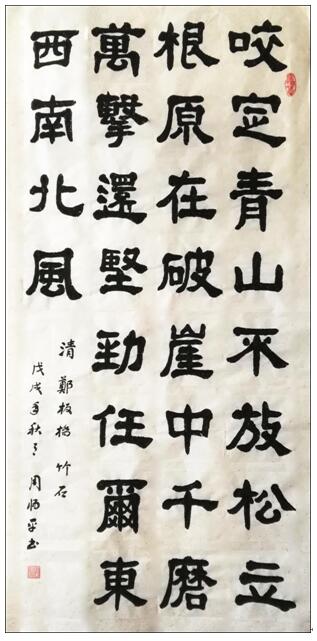 咬定青山不放松立
根原在破崖中千磨
萬擊還堅勁任爾東
西南北風
清 鄭板橋 竹石
戊戌年秋月 周平书